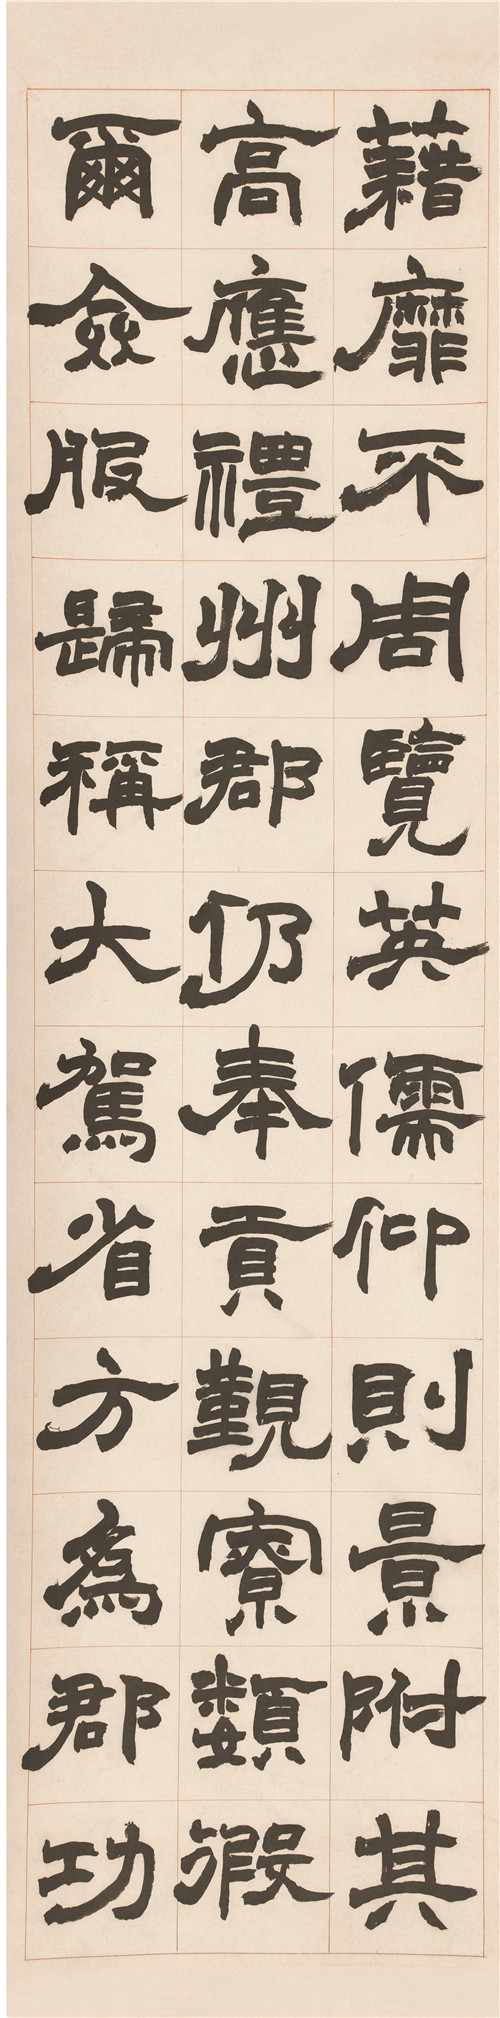 藉靡不周覽英儒仰則景附其
高應禮州郡仍奉貢覲寮類徦
爾僉服歸稱大駕省方為郡功